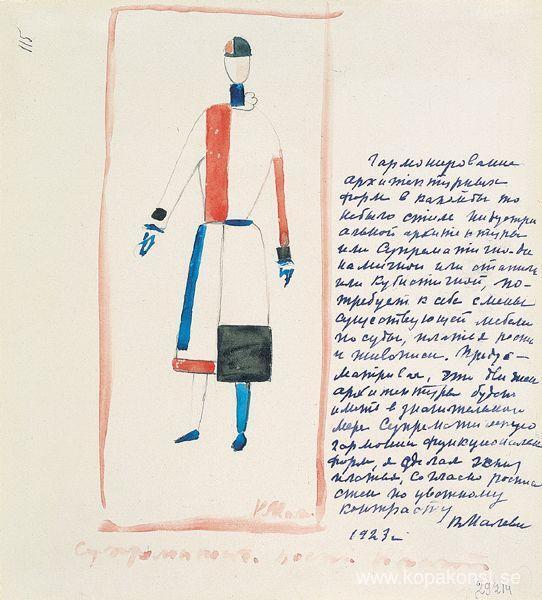 115
Гармонирование
архитектурных
форм в какойбы то
небыло стиле индустри
альной архитектуры
или Супрематично-ди
намичной или статич
или Кубистичной, по-
требует к себе смены
существующей мебели
посуды, платья росписи
и живописи. Преду-
матривая, что движен
архитектуры будет
иметь в значительной
мере Супрематическую
гармонию функциональн
форм, я сделал эскиз
платья, согласно росписи
стен по цветному
контрасту
КМалеви
1923г
К Мал
Супрематия.
www.kopakonst.se
29214